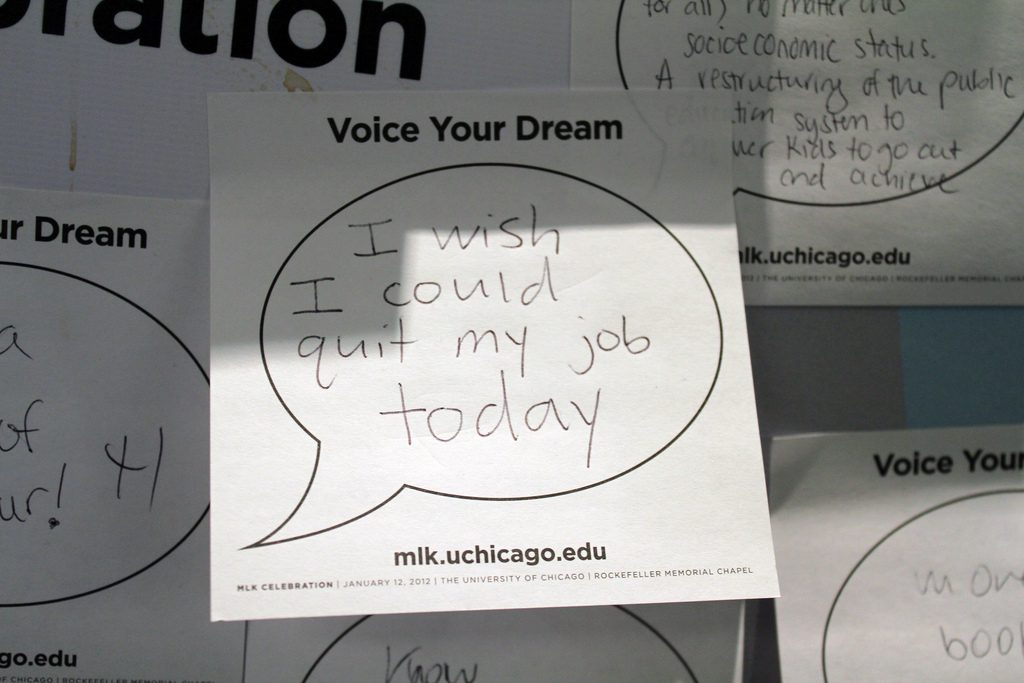 oration
for all) no matter
socioeconomic status.
A restructuring of the public
system to
kids to go out
and achieve
mlk.uchicago.edu
THE UNIVERSITY OF CHICAGO | ROCKEFELLER MEMORIAL CHAPEL
Voice Your Dream
I wish
I could
quit my job
today
mlk.uchicago.edu
MLK CELEBRATION | JANUARY 12, 2012 | THE UNIVERSITY OF CHICAGO | ROCKEFELLER MEMORIAL CHAPEL
ur Dream
a
of
ur!
go.edu
OF CHICAGO | ROCKEFELLER MEMORIAL CHAPEL
Know
Voice Your
more
book